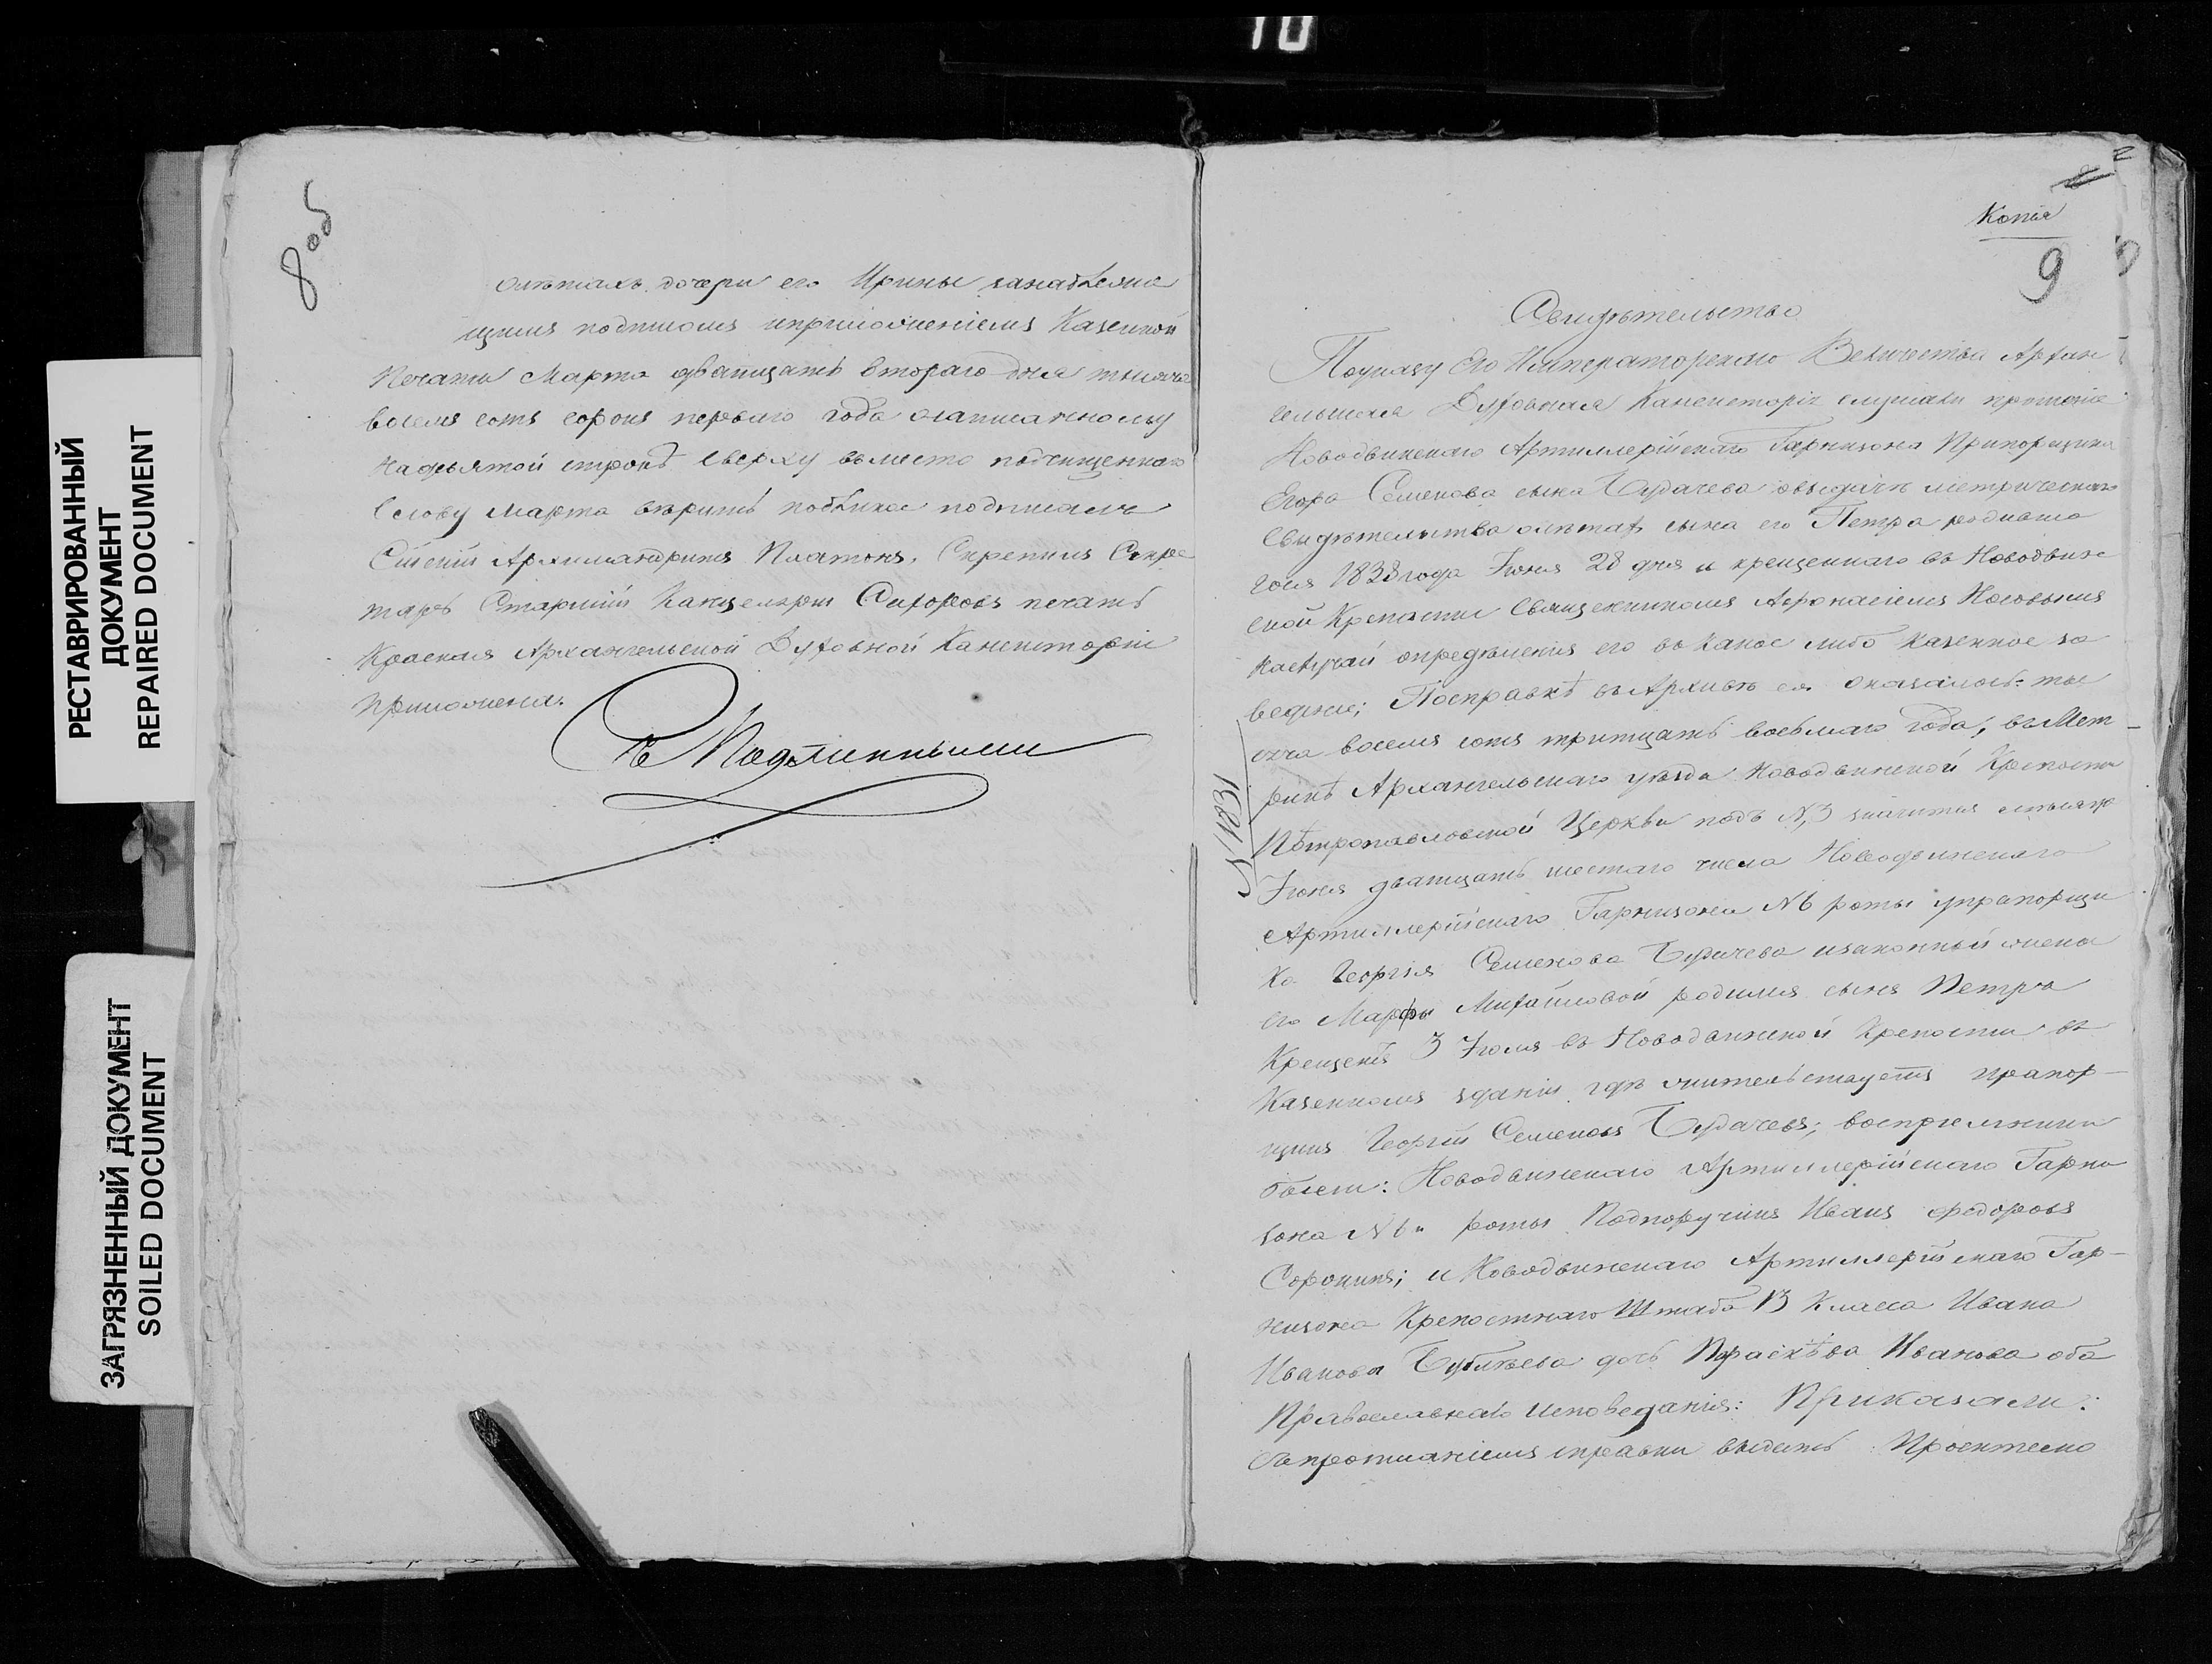 10
РЕСТАВРИРОВАННЫЙ
ДОКУМЕНТ
REPAIRED DOCUMENT
ЗАГРЯЗНЕННЫЙ ДОКУМЕНТ
SOILED DOCUMENT
8об
олѣтахъ дочери его Ирины занадлежа
щимъ подписомъ иприложеніемъ Казенной
Печати Марта дватцать втораго дня тысяча
восемь сотъ сорокъ перваго года онаписанному
надевятой строкѣ сверху вместо подчищеннаго
Слову Марта вѣрить подлиное подписалъ
Архимандритъ Платонъ, Скрепилъ Секре
тарь Старшій Канцеляріи Сидоровъ печать
Красная Архангельской Духовной Канситоріи
приложена.
Съ Подлиннымъ
Копія
9
Свидѣтельство
Поуказу Его Императорскаго Величества Архан
гельская Духовная Консисторія слушали прошеніе
Новодвинскаго Артиллерійскаго Гарнизона Прапорщика
Егора Семенова сына Будачева овыдачѣ метрическаго
Свидѣтельства олѣтах сына его Петра родивша
гося 1838 года Іюня 28 дня и крещеннаго въ Новодвин
ской Крепости Священникомъ Афонасіемъ Носовымъ
наслучай определенія его въ какое либо казенное за
веденіе; Посправкѣ въ Архивѣ ея оказалось: ты
сяча восемь сотъ тритцать восьмаго года, въ Мет-
рикѣ Архангельскаго уѣзда Новодвинской Крепости
Петропавловской Церкви подъ №3 значится
Іюня дватцать шестаго числа Новодвинскаго
Артиллерійскаго Гарнизона №6 роты упрапорщи
ка Георгія Семенова Будачева изаконной жены
его Марфы Михайловой родился сынъ Петръ
Крещенъ 3 Іюля въ Новодвинской Крепости въ
Казенномъ зданіи гдѣ жительствуетъ прапор-
щикъ Георгій Семеновъ Будачевъ; воспріемники
были: Новодвинскаго Артиллерійскаго Гарни
зона №6й роты Подпоручикъ Иванъ Федоровъ
Сорокинъ; и Новодвинскаго Артиллерійскаго Гар-
низона Крепостнаго Штаба 13 Класса Ивана
Иванова дочь Праскѣва Иванова оба
Православнаго исповеданія: Приказали:
Съпрописаніемъ справки выдать
1831